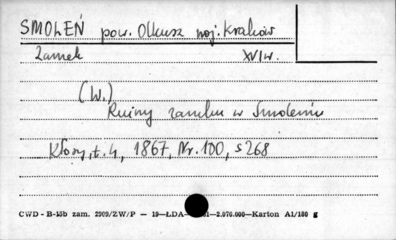 SMOLEŃ pow. Olkusz woj. Kraków
Zamek XVI w.
(W.)
Ruiny zamku w Smoleniu
Kłosy, t. 4, 1867, Nr. 100, s 268
CWD - B-15b zam. 2909/ZW/P — 19—LDA- -2.076.000—Karton A1/180 g